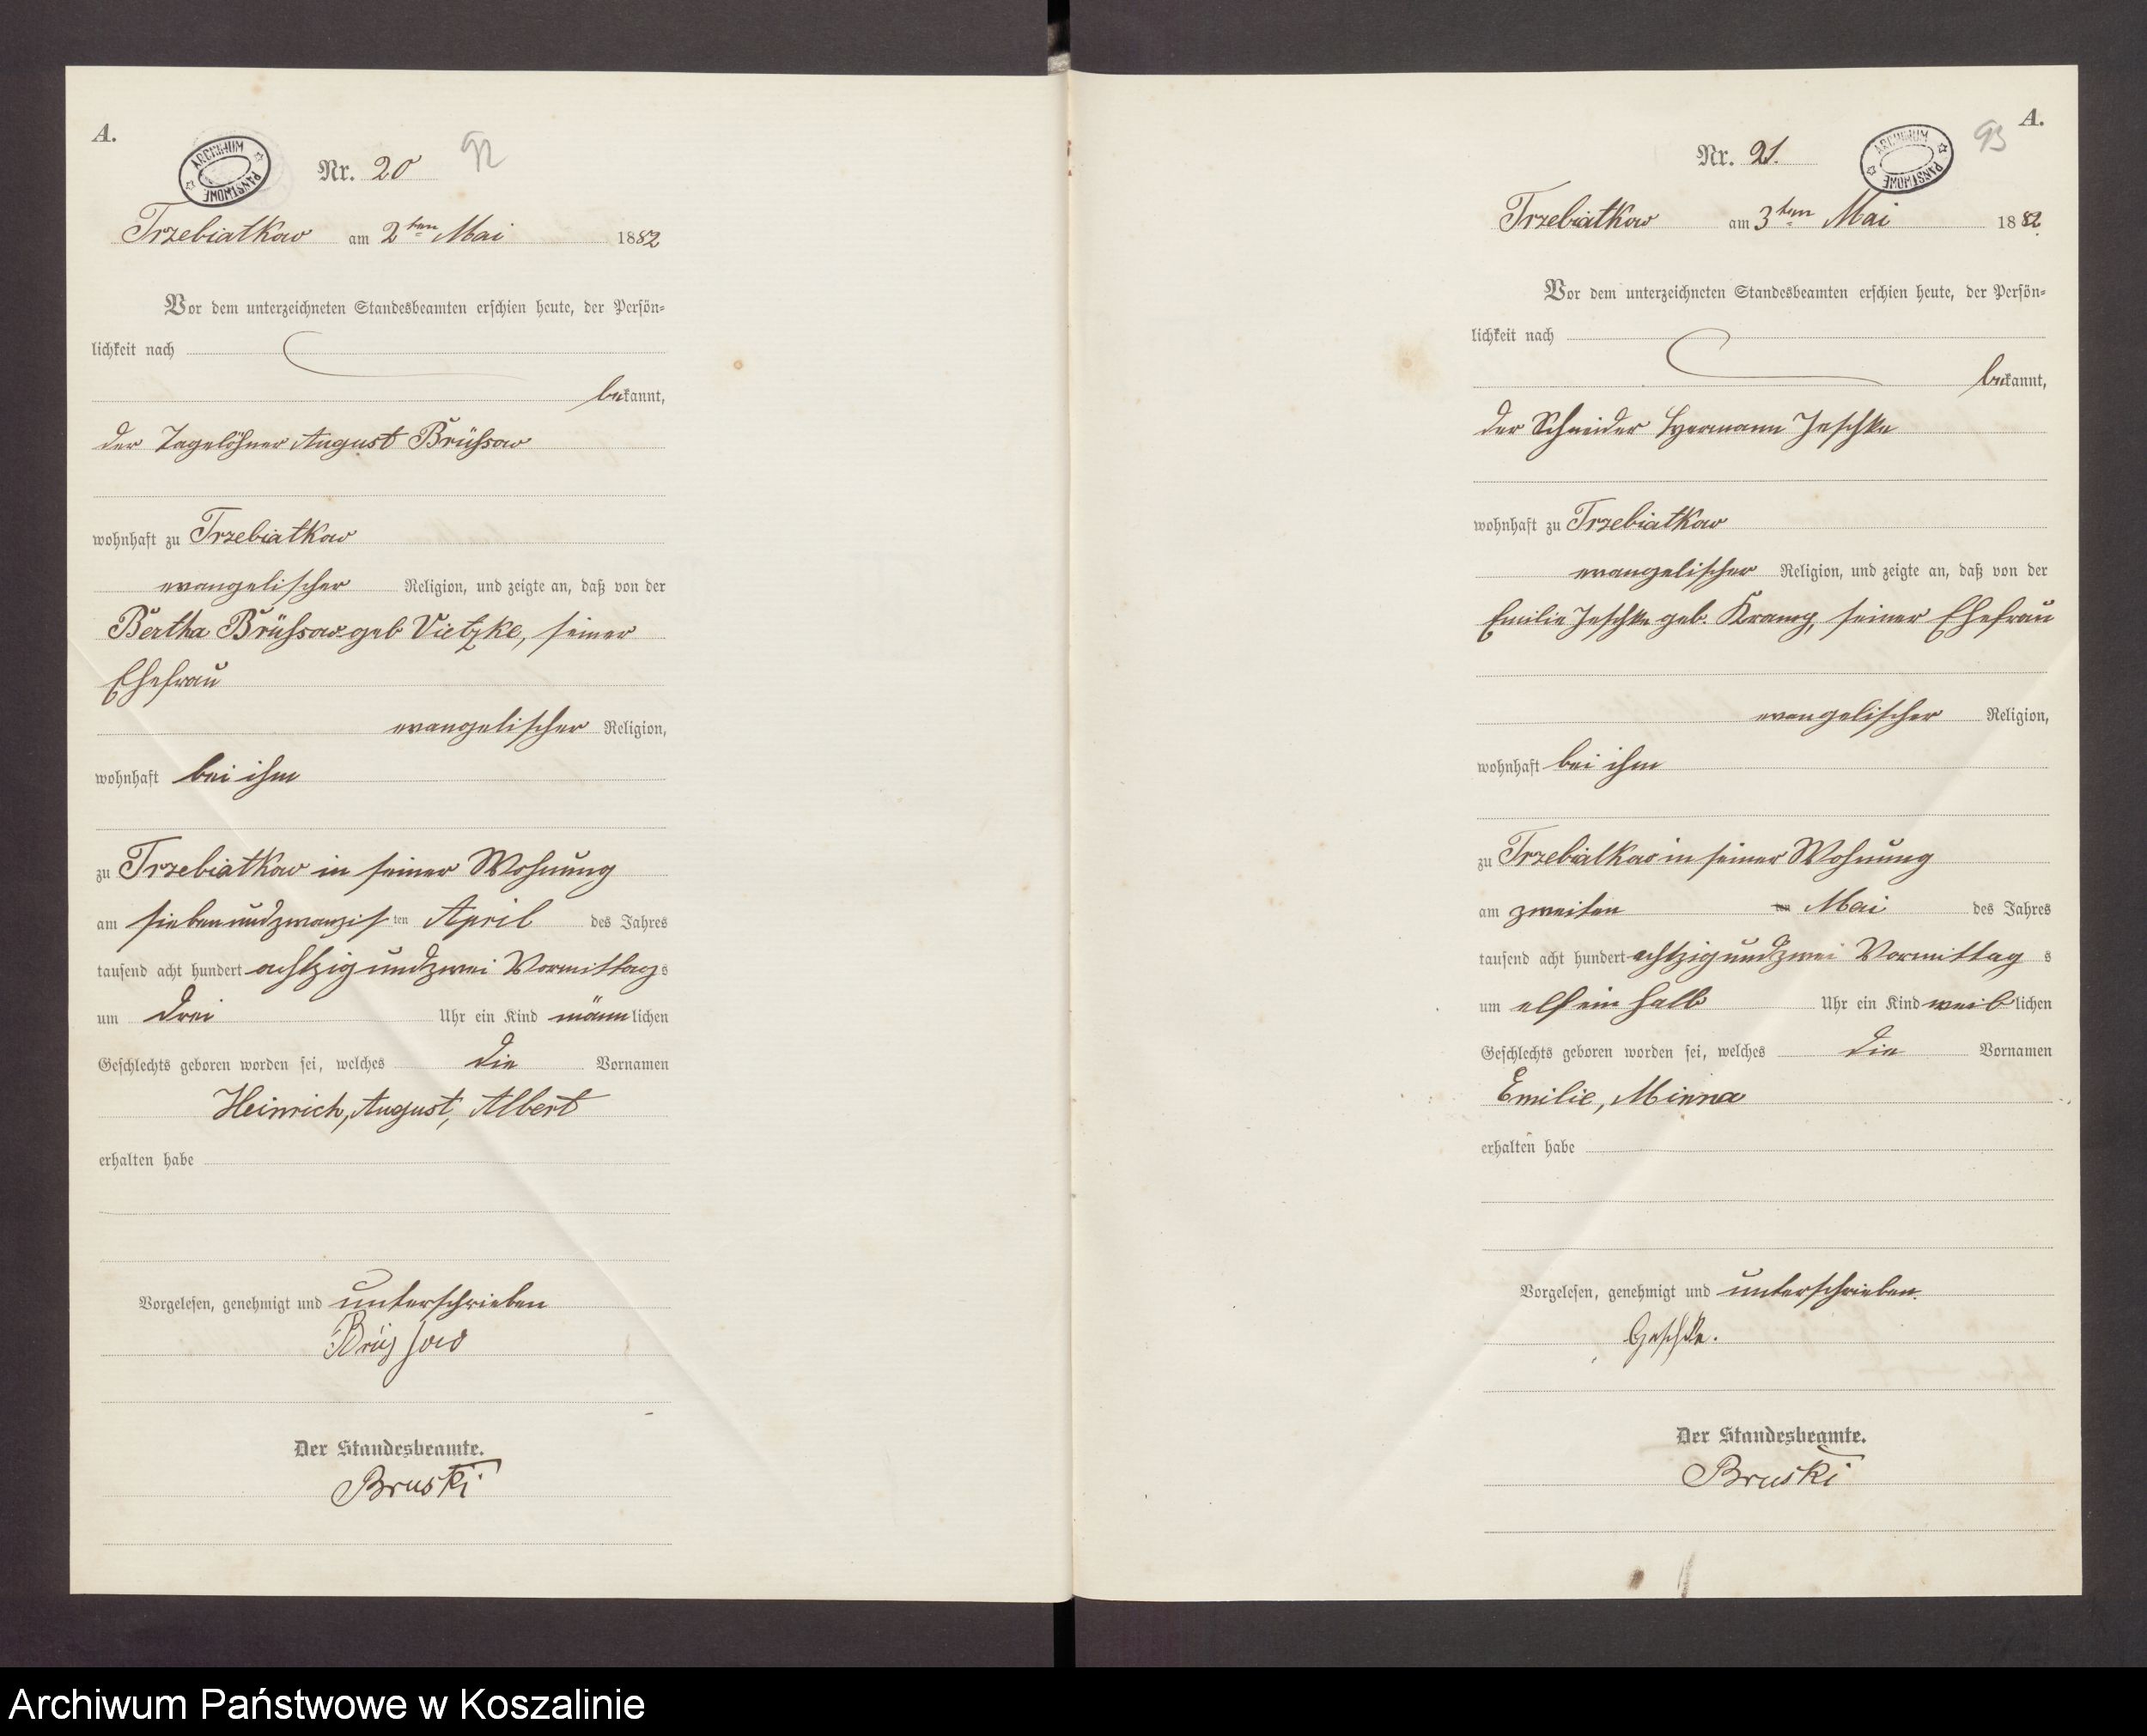 A.
ARCHIWUM PAŃSTWOWE
Nr. 20
92
Trzebiatkow am 2ten Mai 1882
Vor dem unterzeichneten Standesbeamten erschien heute, der Persön-
lichkeit nach
bekannt,
der Tagelöhner August Brüssow
wohnhaft zu Trzebiatkow
evangelischer Religion, und zeigte an, daß von der
Bertha Brüssow geb Vietzke, seiner
Ehefrau
evangelischer Religion,
wohnhaft bei ihm
zu Trzebiatkow in seiner Wohnung
am siebenundzwanzigsten April des Jahres
tausend acht hundert achtzig und zwei Vormittags
um drei Uhr ein Kind männlichen
Geschlechts geboren worden sei, welches die Vornamen
Heinrich, August, Albert
erhalten habe
Vorgelesen, genehmigt und unterschrieben
Brüssow
Der Standesbeamte.
Bruski
A.
93
ARCHIWUM PAŃSTWOWE
Nr. 21.
Trzebiatkow am 3ten Mai 1882.
Vor dem unterzeichneten Standesbeamten erschien heute, der Persön-
lichkeit nach
bekannt,
der Schneider Hermann Jeschke
wohnhaft zu Trzebiatkow
evangelischer Religion, und zeigte an, daß von der
Emilie Jeschke geb. Kramp, seiner Ehefrau
evangelischer Religion,
wohnhaft bei ihm
zu Trzebiatkow in seiner Wohnung
am zweiten ten Mai des Jahres
tausend acht hundert achtzig und zwei Vormittags
um elf ein halb Uhr ein Kind weiblichen
Geschlechts geboren worden sei, welches die Vornamen
Emilie, Minna
erhalten habe
Vorgelesen, genehmigt und unterschrieben.
Geschke.
Der Standesbeamte.
Bruski
Archiwum Państwowe w Koszalinie